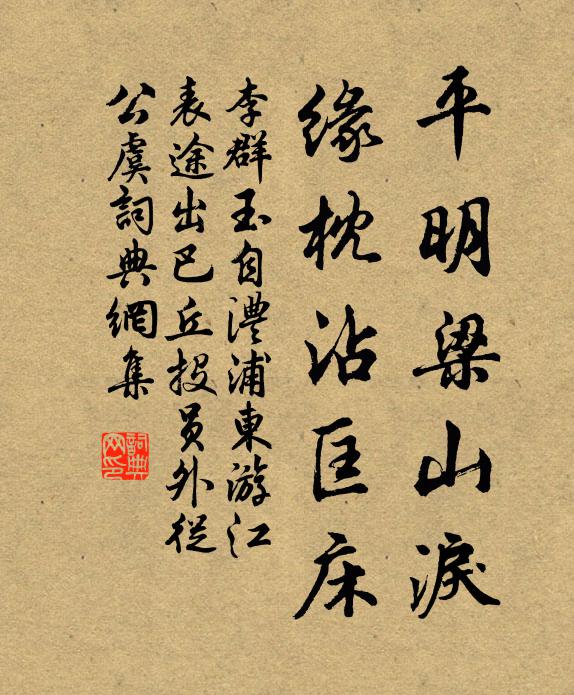 平明梁山淚
緣枕沾匡床
李群玉自澧浦東游江
表途出巴丘投员外從
公虞詞典網集
詞典网印